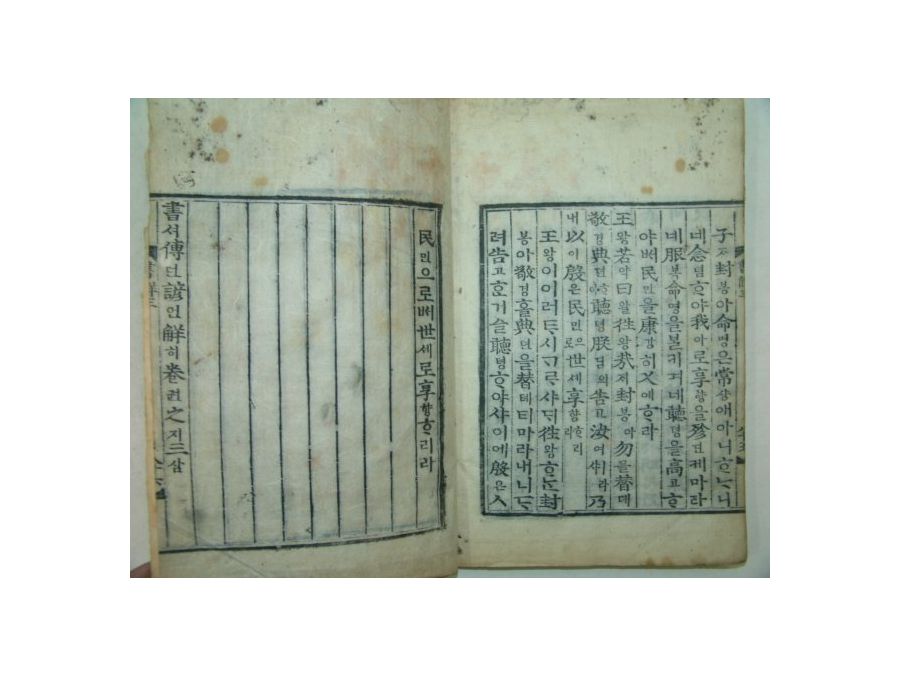 子ᄌᆞ封봉아命명은常샹애아니ᄒᆞᄂᆞ니
네念념ᄒᆞ야我아로享향을殄뎐케마라
네服복命명을ᄇᆞᆯ키며네聽텽을高고ᄒᆞ
야ᄡᅥ民민을康강히乂예ᄒᆞ라
王왕若약曰왈往왕哉ᄌᆡ封봉아勿믈替톄
敬경典뎐ᄒᆞ야聽텽朕딤의告고汝여ᅀᅡ라乃
내以이殷은民민으로世셰享향ᄒᆞ리라
王왕이이러ᄐᆞ시ᄀᆞᄅᆞ샤ᄃᆡ往왕ᄒᆞᄂᆞᆫ封
봉아敬경ᄒᆞᆯ典뎐을替톄티마라내니ᄃᆞ
려告고ᄒᆞᆫ거슬聽텽ᄒᆞ야ᅀᅡ이에殷은人
民민으로ᄡᅥ世셰로享향ᄒᆞ리라
書셔傳뎐諺언解ᄒᆡ卷권之지三삼